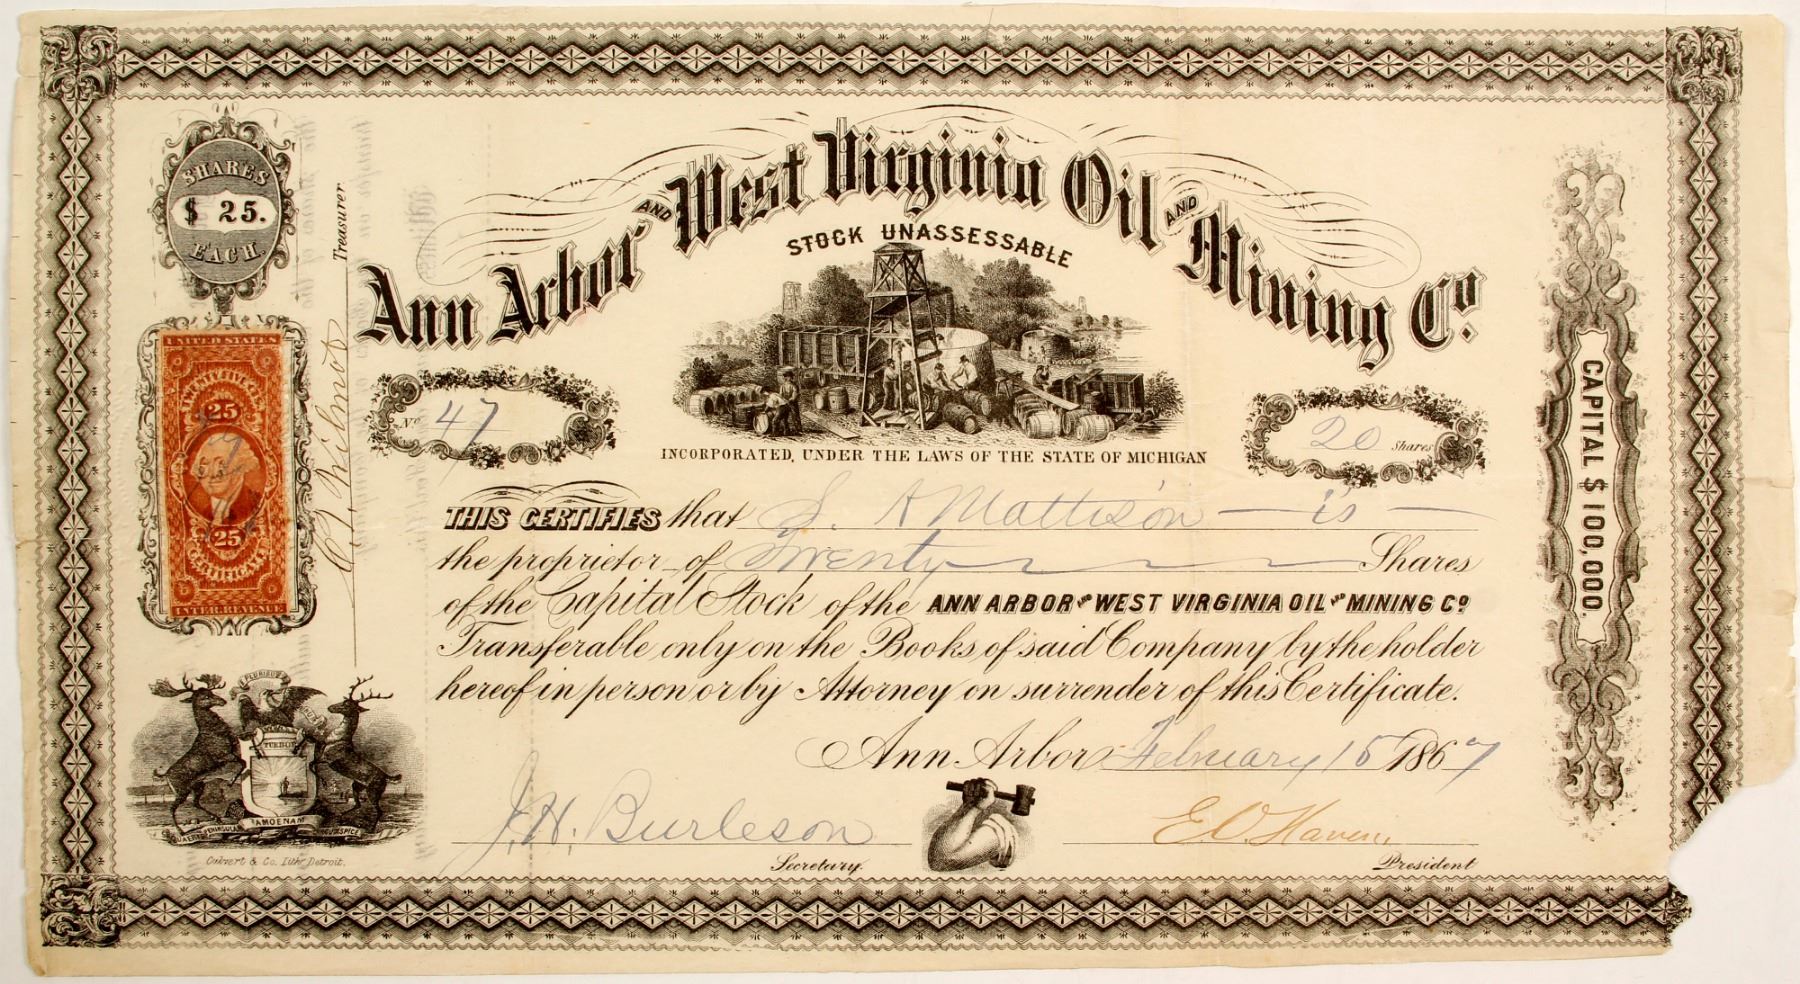 SHARES
$ 25.
EACH.
UNITED STATES
TWENTY FIVE CTS.
25
25
CERTIFICATE
INTER. REVENUE
Treasurer
Ann Arbor AND West Virginia Oil AND Mining Co.
STOCK UNASSESSABLE
No 47
20 Shares
INCORPORATED, UNDER THE LAWS OF THE STATE OF MICHIGAN
THIS CERTIFIES that S. A Mattison is
the proprietor of Twenty Shares
of the Capital Stock of the ANN ARBOR AND WEST VIRGINIA OIL AND MINING CO
Transferable only on the Books of said Company by the holder
hereof in person or by Attorney on surrender of this Certificate.
Ann Arbor February 15 1867
J. H. Burleson
Secretary.
E. O. Haven,
President
PLURIBUS
TUEBOR
AMOENAM
Calvert & Co. Lith. Detroit.
CAPITAL $100,000.